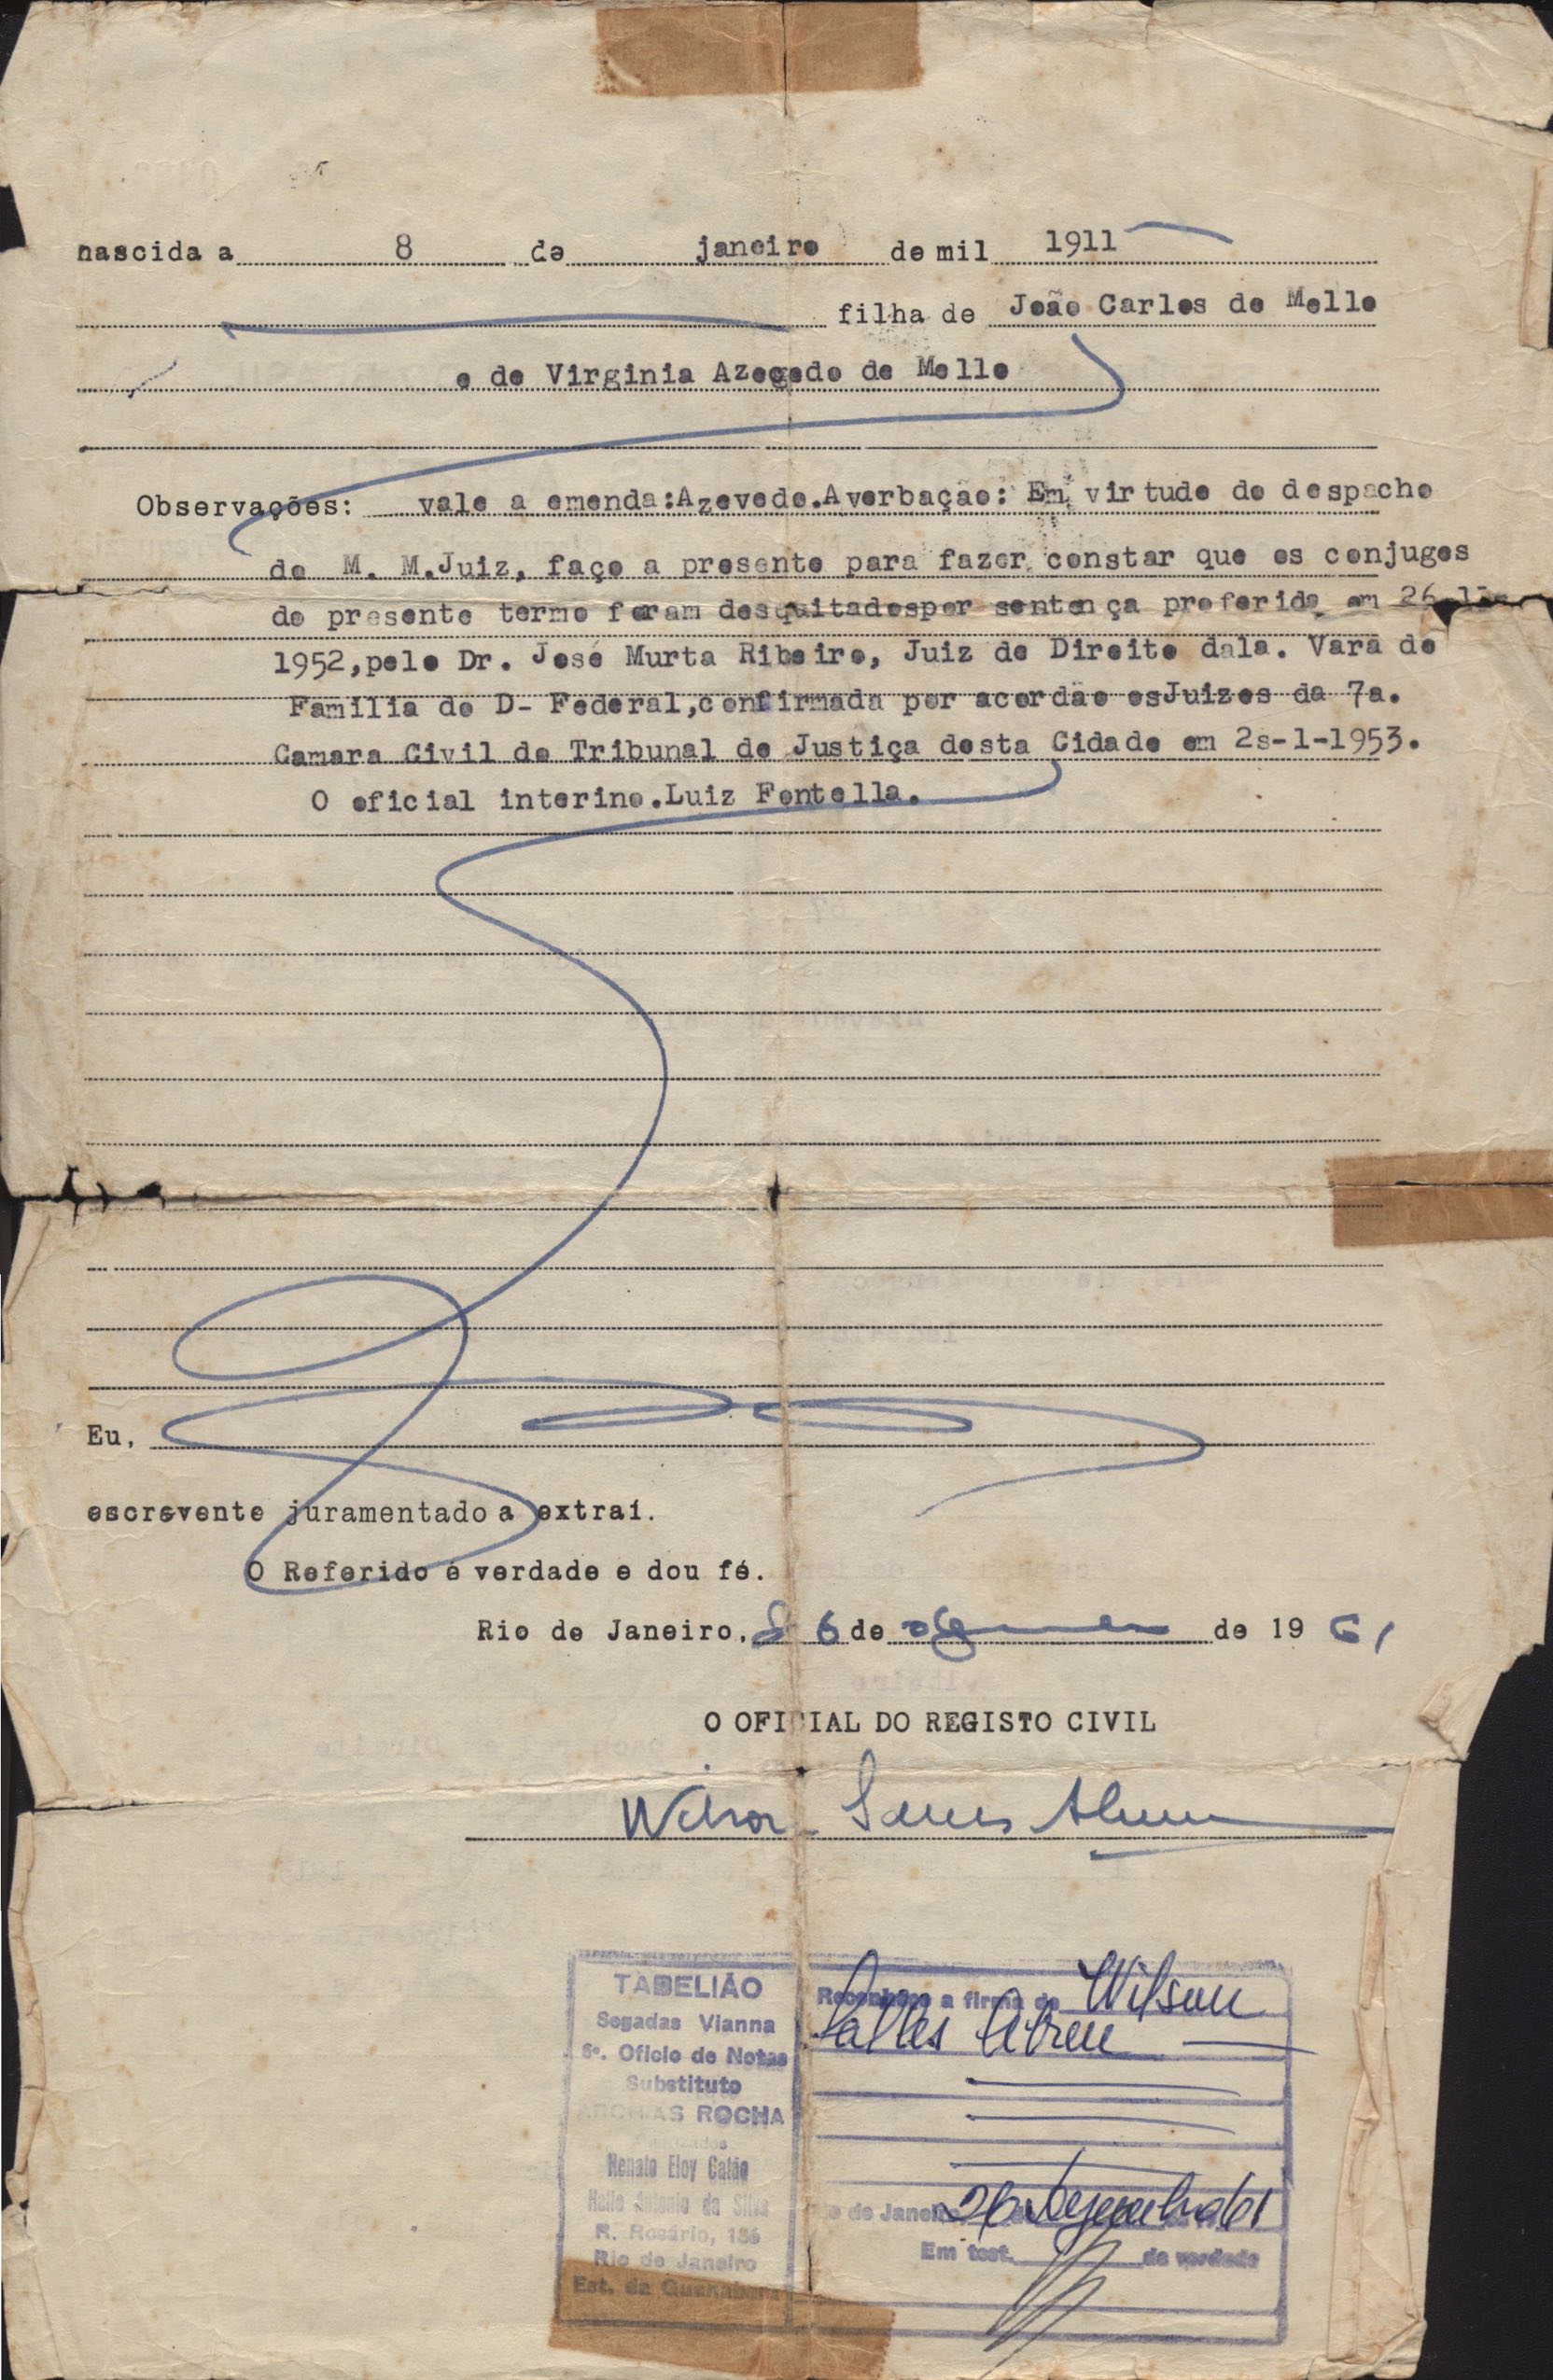 nascida a 8 de janeiro de mil 1911
filha de João Carlos de Mello
e de Virginia Azecedo de Mello
Observações: vale a emenda:Azevedo.Averbação: Em virtude do despacho
do M. M.Juiz, faço a presente para fazer constar que os conjuges
do presente termo foram desquitadospor sentença proferida em 26-11-
1952,pelo Dr. José Murta Ribeiro, Juiz de Direito da1a. Vara de
Familia do D- Federal,confirmada por acordão osJuizes da 7a.
Camara Civil do Tribunal de Justiça desta Cidade em 2s-1-1953.
O oficial interino.Luiz Fontella.
Eu,
escrevente juramentado a extraí.
O Referido é verdade e dou fé.
Rio de Janeiro, 26 de dezembro de 1961
O OFICIAL DO REGISTO CIVIL
Wilson Salles Abreu
TABELIÃO
Segadas Vianna
6º. Oficio de Notas
Substituto
ARCHIAS ROCHA
Renato Eloy Catão
Helio Antonio da Silva
R. Rosário, 136
Rio de Janeiro
Est. da Guanabara
Reconheço a firma de Wilson
Salles Abreu
Rio de Janeiro 26 dezembro 61
Em test. da verdade